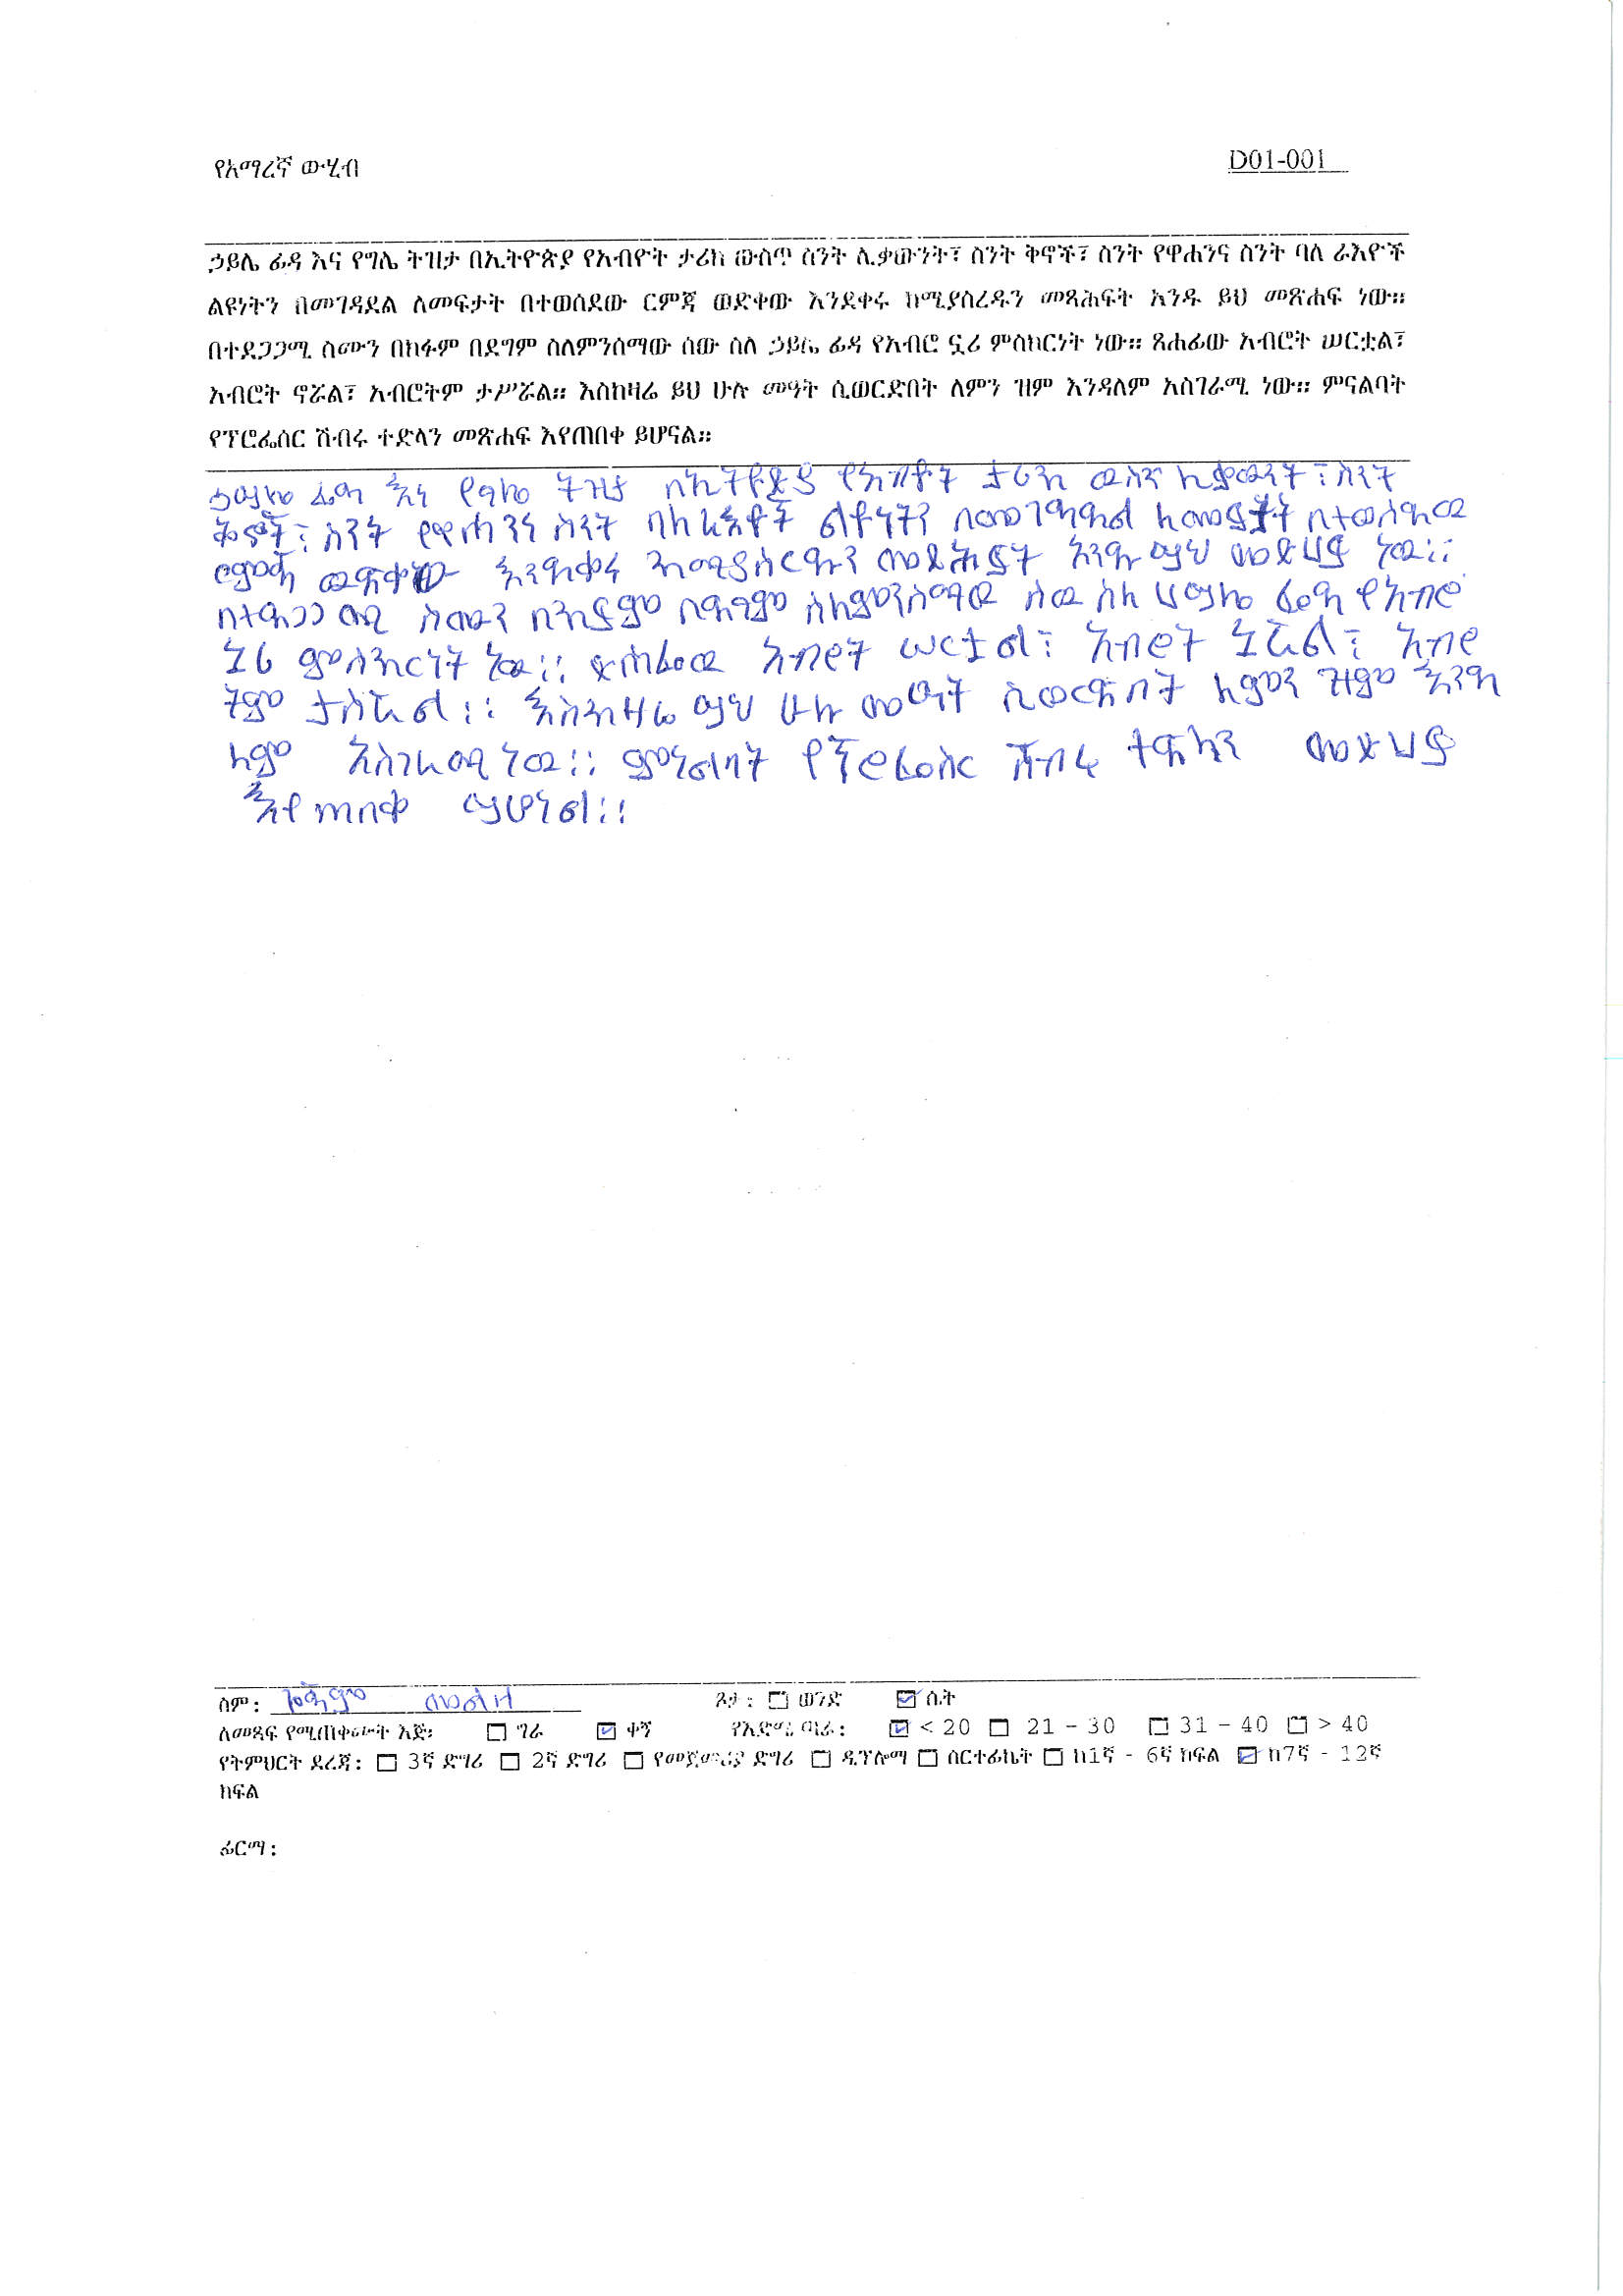 የአማረኛ ውሂብ
D01-001
ኃይሌ ፊዳ እና የግሌ ትዝታ በኢትዮጵያ የአብዮት ታሪክ ውስጥ ስንት ሊቃውንት፣ ስንት ቅኖች፣ ስንት የዋሐንና ስንት ባለ ራእዮች
ልዩነትን በመገዳደል ለመፍታት በተወሰደው ርምጃ ወድቀው እንደቀሩ ከሚያስረዱን መጻሕፍት አንዱ ይህ መጽሐፍ ነው።
በተደጋጋሚ ስሙን በክፉም በደግም ስለምንሰማው ሰው ስለ ኃይሌ ፊዳ የአብሮ ኗሪ ምስክርነት ነው። ጸሐፊው አብሮት ሠርቷል፣
አብሮት ኖሯል፣ አብሮትም ታሥሯል። እስከዛሬ ይህ ሁሉ መዓት ሲወርድበት ለምን ዝም እንዳለም አስገራሚ ነው። ምናልባት
የፕሮፌሰር ሽብሩ ተድላን መጽሐፍ እየጠበቀ ይሆናል።
ኃይሌ ፊዳ እና የግሌ ትዝታ በኢትዮጵያ የአብዮት ታሪክ ውስጥ ሊቃውንት፣ ስንት
ቅኖች፣ ስንት የዋሐንና ስንት ባለ ራእዮች ልዩነትን በመገዳደል ለመፍታት በተወሰደው
ርምጃ ወድቀው እንደቀሩ ከሚያስርዱን መጽሕፍት አንዱ ይህ መጽሀፍ ነው።
በተደጋጋሚ ስሙን በክፍም በደግም ስለምንስማው ስው ስለ ሀይሌ ፊዳ የአብሮ
ኗሪ ምስክርነት ነው። ጽሐፊው አብሮት ሠርቷል፣ አብሮት ኗሯል፣ አብሮ
ትም ታስሯል። እስከዛሬ ይህ ሁሉ መዓት ሲወርድበት ለምን ዝም እንዳ
ለም አስገራሚ ነው። ምናልባት የፕሮፌስር ሽብሩ ተድላን መጽሀፍ
እየጠበቀ ይሆናል።
ስም: መልስ
ጾታ: ☐ ወንድ ☑ ሴት
ለመጻፍ የሚጠቀሙት እጅ፡ ☐ ግራ ☑ ቀኝ የእድሜ ጣራ: ☑ < 20 ☐ 21 – 30 ☐ 31 – 40 ☐ > 40
የትምህርት ደረጃ: ☐ 3ኛ ድግሪ ☐ 2ኛ ድግሪ ☐ የመጀመሪያ ድግሪ ☐ ዲፕሎማ ☐ ሰርተፊኬት ☐ ከ1ኛ - 6ኛ ክፍል ☑ ከ7ኛ - 12ኛ
ክፍል
ፊርማ: